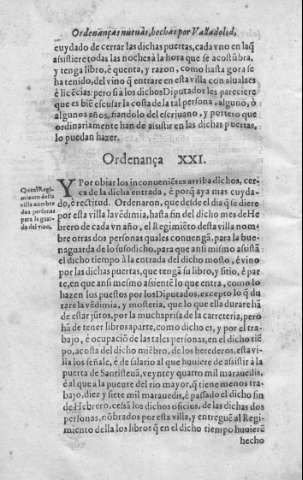 Ordenanças nueuas, hechas por Valladolid,
cuydado de cerrar las dichas puertas, cada vno en la q̃
assistiere todas las noches à la hora que se acostũbra,
y tenga libro, è quenta, y razon, como hasta gora se
ha tenido, del vino q̃ entrare en esta villa con aluales
è licẽcias: pero si a los dichos Diputados les pareciere
que es biẽ escusar la costa de la tal persona, alguno, ò
algunos años, fiandolo del escriuano, y portero que
ordinariamente han de assistir en las dichas puertas,
lo puedan hazer.
Ordenança XXI.
Que el Regi-
miento desta
villa nombre
dos personas
para la guar-
da del vino.
Y Por obiar los inconueniẽtes arriba dichos, cer-
ca de la dicha entrada, è porq̃ aya mas cuyda-
do, è rectitud. Ordenaron, que desde el dia q̃ se diere
por esta villa la vẽdimia, hasta fin del dicho mes de He-
brero de cada vn año, el Regimiẽto desta villa nom-
bre otras dos personas quales conuengã, para la bue-
na guarda de lo susodicho, para que ansi mismo assistã
el dicho tiempo à la entrada del dicho mosto, è vino
por las dichas puertas, que tengã su libro, y sitio, è par-
te, en que ansi mesmo assientẽ lo que entra, como lo
hazen los puestos por los Diputados, excepto lo q̃ du
rare la vẽdimia, y mosteria, que lo que ella durare hã
de estar jũtos, por la mucha prisa de la carreteria, pero
hã de tener libros aparte, como dicho es, y por el tra-
bajo, è ocupaciõ de las tales personas, en el dicho tiẽ-
po, a costa del dicho miẽbro, de los herederos, esta vi-
lla los señale, è de salario al que huuiere de assistir à la
puerta de Santisteuã, veynte y quatro mil marauedis,
è al que a la puente del rio mayor, q̃ tiene menos tra-
bajo, diez y siete mil marauedis, è passado el dicho fin
de Hebrero, cessã los dichos oficios, de las dichas dos
personas, nõbrados por esta villa, y entregue al Regi-
miento della los libros q̃ en el dicho tiempo huuierẽ
hecho